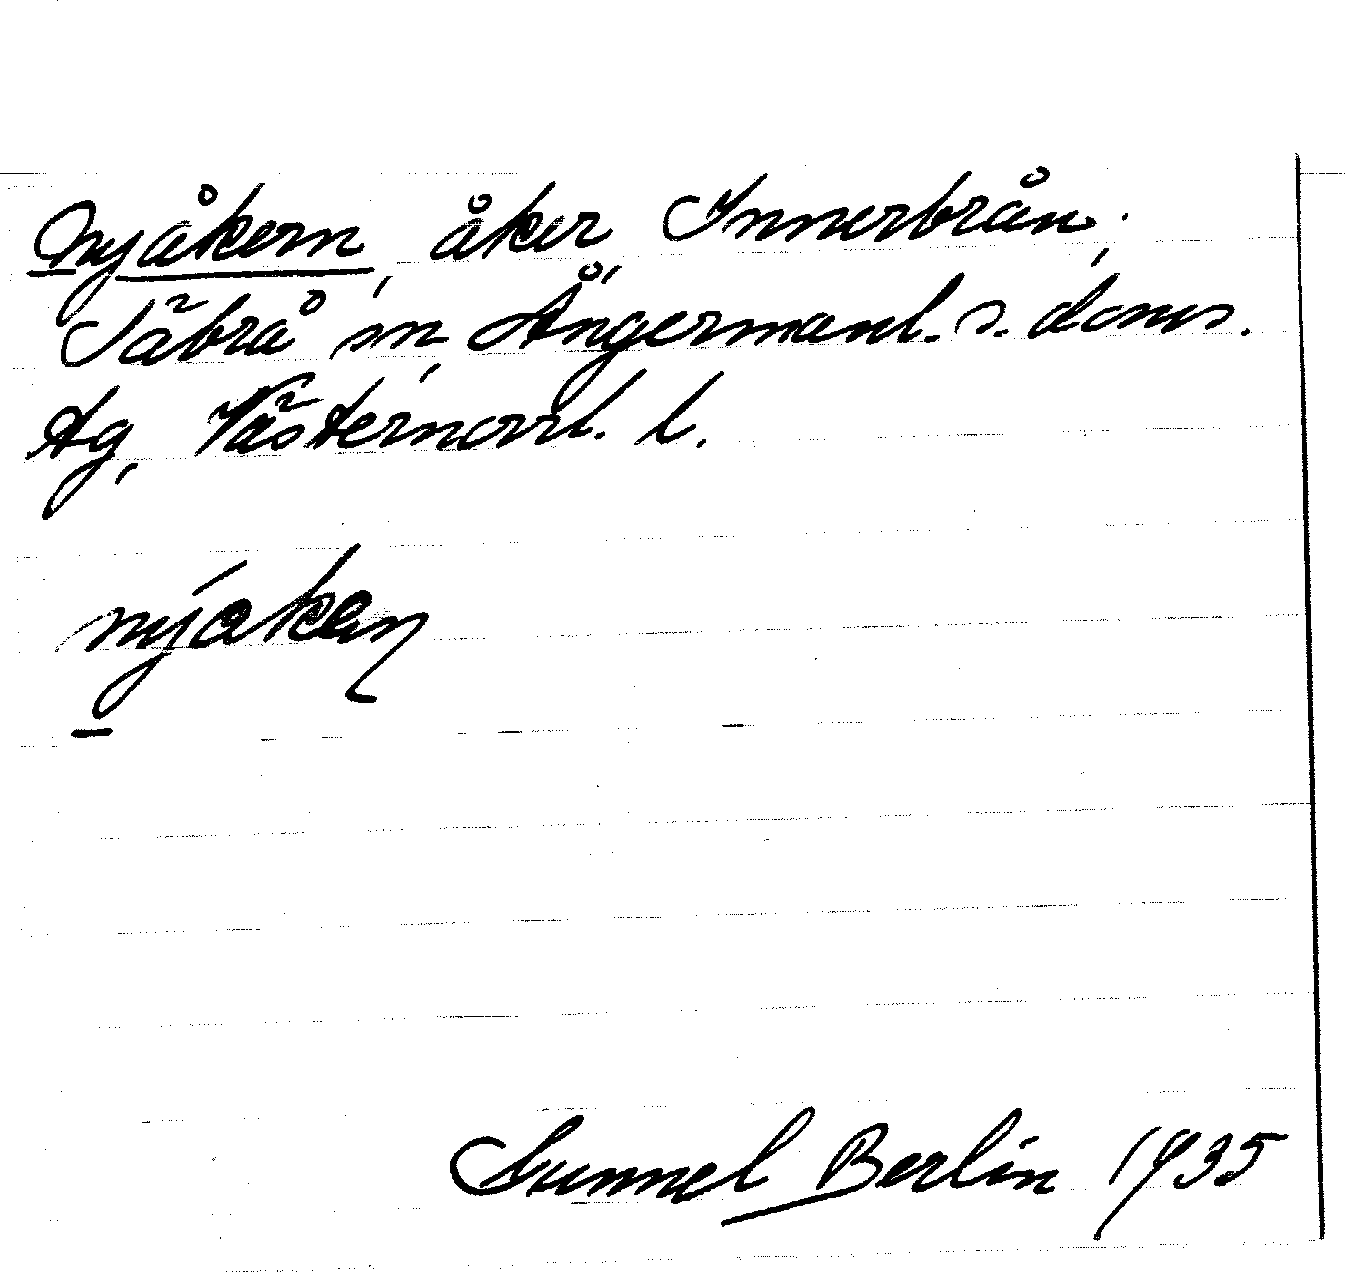 Nyåkern, åker, Innerbrån,
Säbrå sn, Ångermanl. s. doms.
tg, Västernorrl. l.
nyákan
Gunnel Berlin 1935